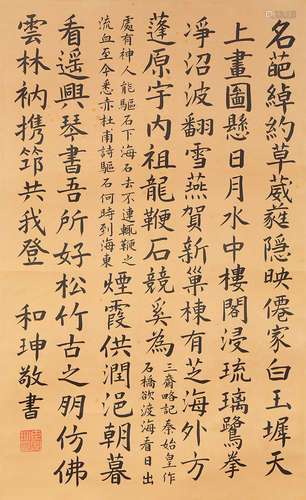 名葩綽約草葳蕤隱映僊家白玉墀天
上畫圖懸日月水中樓閣浸琉璃鷺拳
凈沼波翻雪燕賀新巢棟有芝海外方
蓬原宇內祖龍鞭石競奚為
三齋略記秦始皇作
石橋欲渡海看日出
處有神人能驅石下海石去不速輒鞭之
流血至今悉赤杜甫詩驅石何時到海東
煙霞供潤浥朝暮
看遙興琴書吾所好松竹古之朋仿佛
雲林衲携筇共我登
和珅敬書